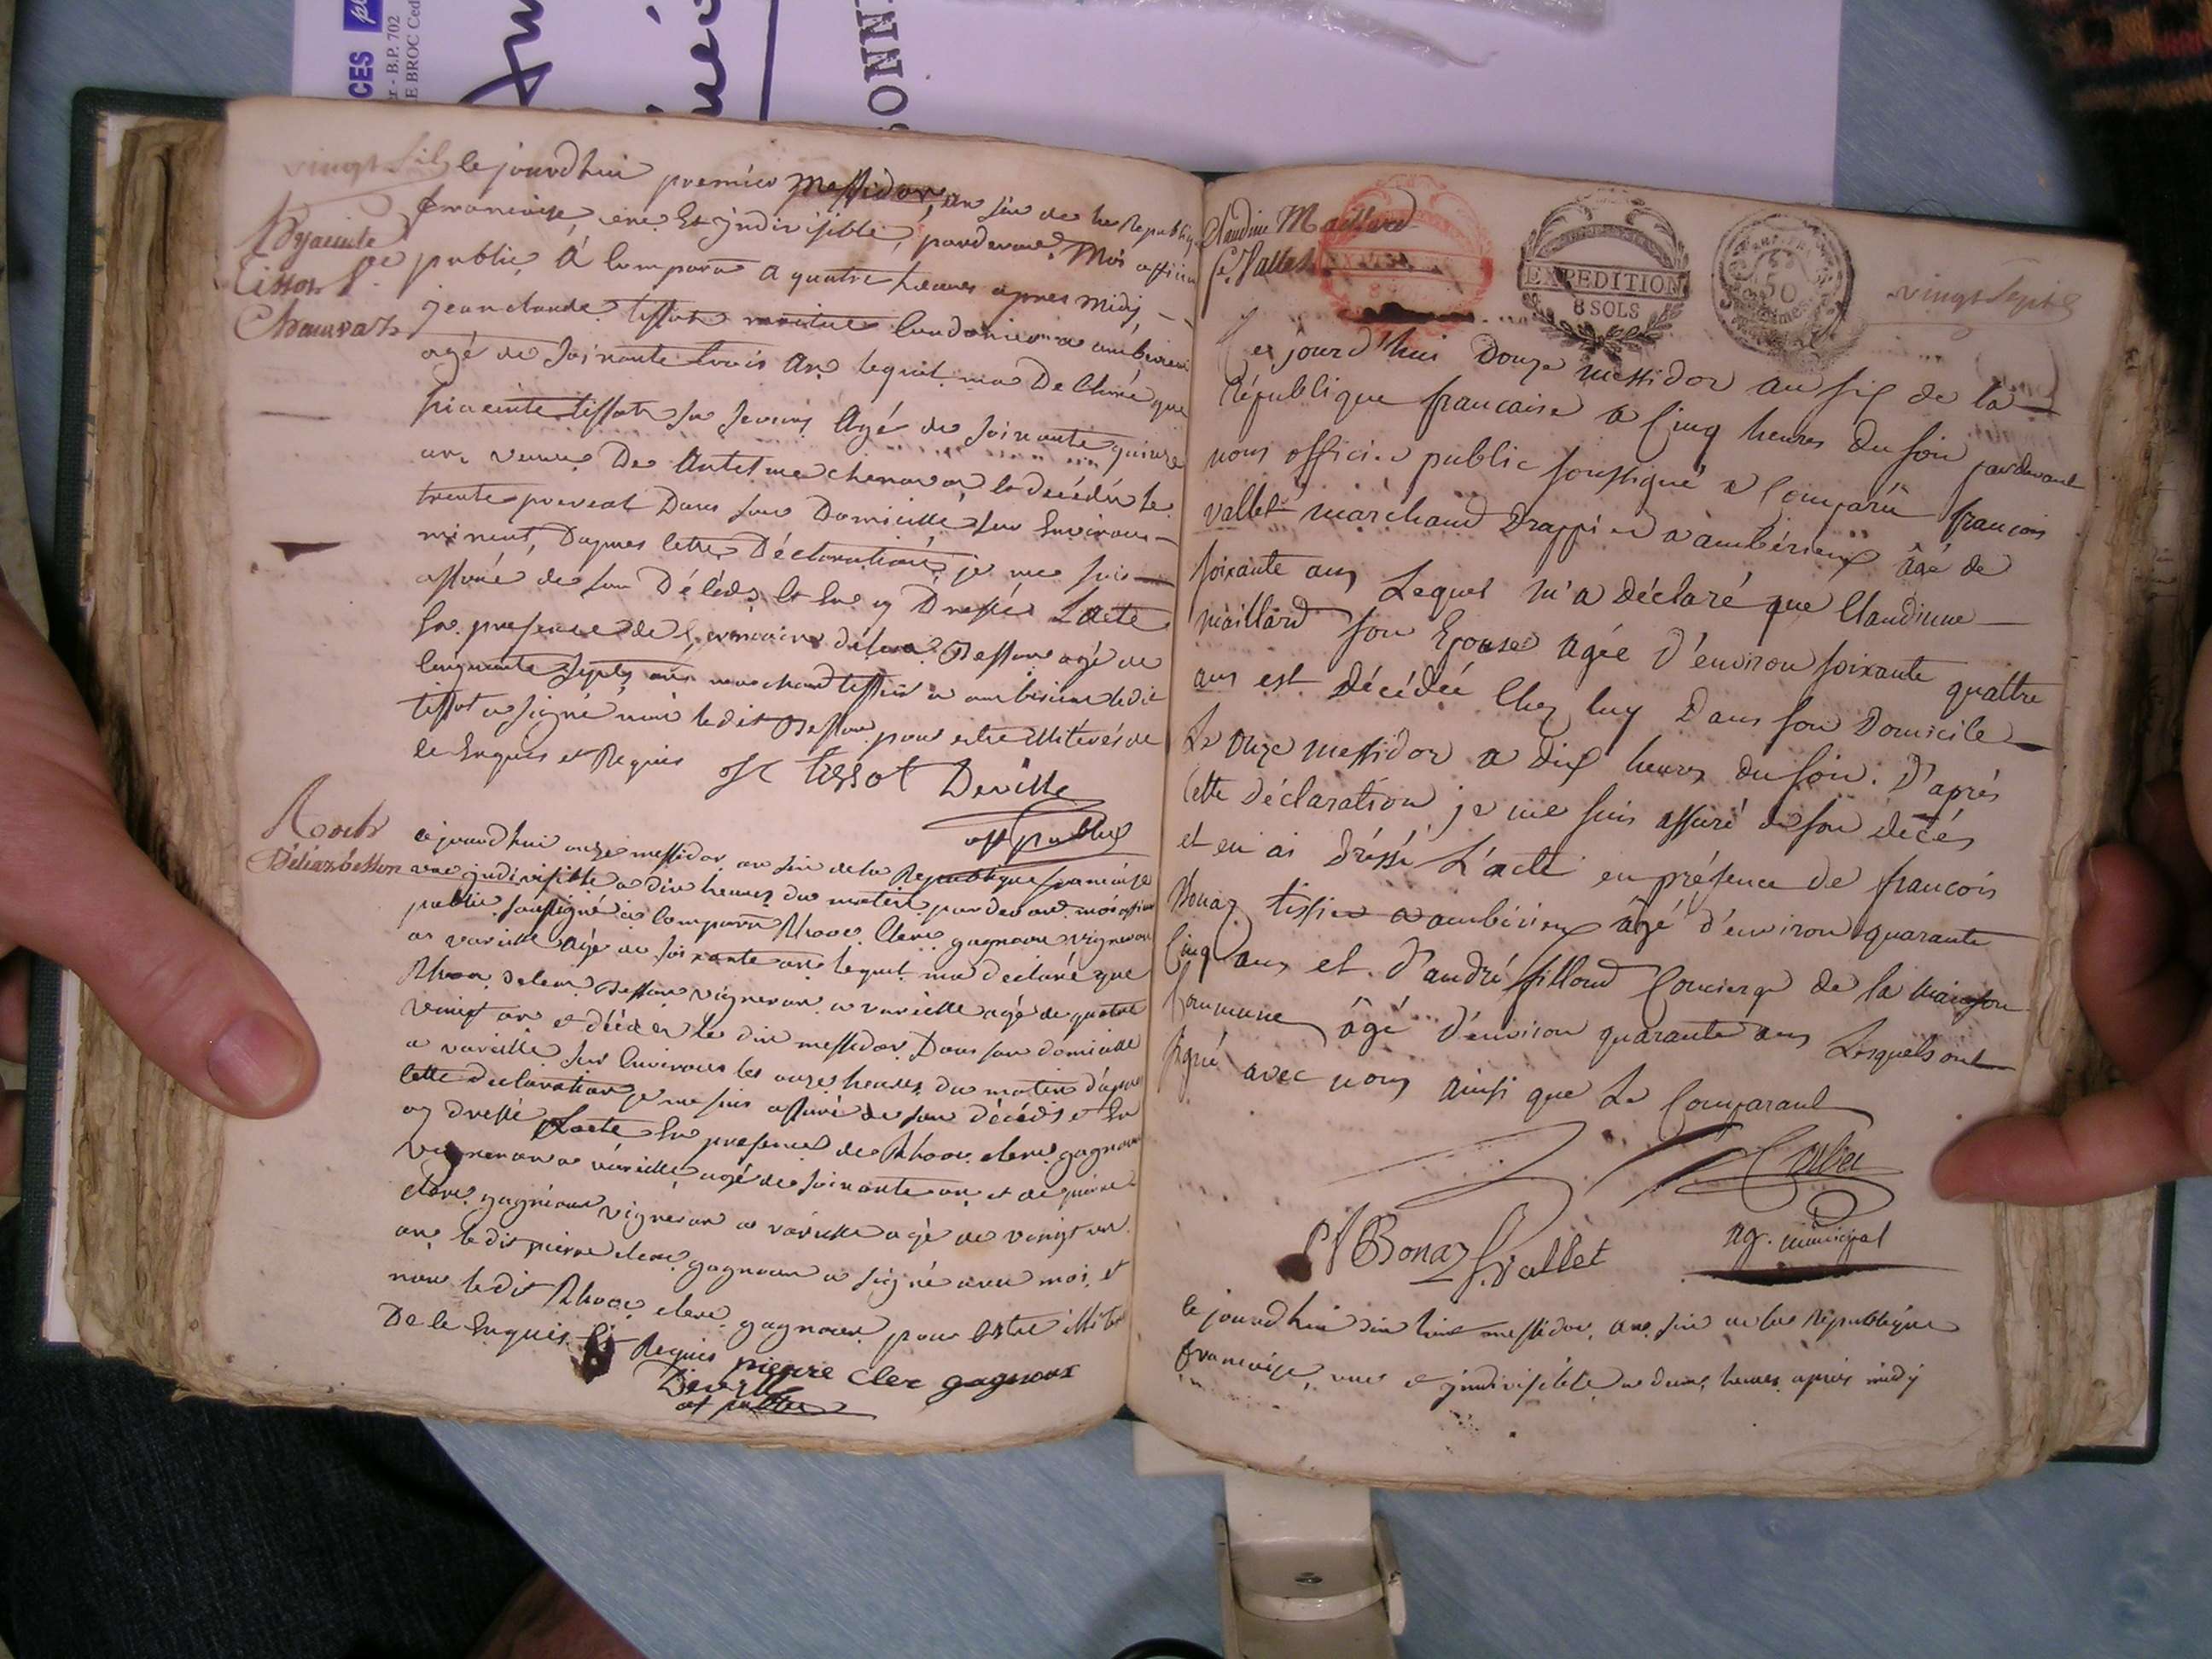 CES
r - B.P. 702
E BROC Ced
ONN
vingt six
le jourdhui premier messidor, an six de la Republiq
francoise, une Et jndivisible, pardevant Moi officier
public, à Comparu a quatre heures apres Midy
jean claude tissot
agé de soixante trois ans lequel ma Déclaré que
hiacinte tissot sa soeur Agé de soixante quinze
ans veuve De Antelme chenavas, Et décédée le
trente prereal Dans son Domicille sur Environs
minuit, Dapres cette Déclaration, je me suis
assuré de son Décéds Et En ay Dressés Lacte
En presence de
cinquante septs ans marchand tissier a ambérieu ledit
tissot a signé non ledit Besson pour estre illiterés de
ce Enquis et Requis
Tissot Deville
off public
Hyacinte
Tissot Ve
Chanavaz
Roch
Délias besson
ejourdhui onze messidor an six de la Republique francoise
une jndivisible a dix heures du matin pardevant moi officier
public soussigné a Comparu Rhoc Clerc gagneux vigneron
a vareille agé de soixante ans lequel ma declaré que
Rhoc Besson vigneron a vareille agé de quatre
vingt ans et décéder le dix messidor Dans son domicille
a vareille sur Environs les onze heures du matin dapres
cette declaration je me suis assuré de son décéds et En
ay dressé Lacte En presence de Rhoc clerc gagneux
vigneron a vareille agé de soixante ans et de pierre
clerc gagneux vigneron a vareille agé de vingt un
ans ledit pierre clerc gagneux a signé avec moi et
non ledit Rhoc clerc gagneux pour Estre
De ce Enquis Et Requis
pierre clec gagneux
Deville
of public
Claudine Maillard
fe Vallet
EXPEDITION
8 SOLS
EXPEDITION
8 SOLS
50
vingt Sept
Cejourd'hui Douze messidor an six de la
République francaise a cinq heures du soir pardevant
nous officier public soussigné a Comparû francois
vallet marchand Drappier a ambérieux âgé de
soixante ans Lequel m'a Déclaré que Claudinne
maillard son Epouse agée D'environ soixante quattre
ans est Décédée Chez luy Dans son Domicile
Le onze messidor a dix heures du soir. D'aprés
Cette Déclaration je me suis assuré de son décés
et en ai Dréssé L'acte en présence de francois
Bonaz tissier a ambérieux âgé d'environ quarante
Cinq ans et D'andré fillioud Concierge de la maison
Commune âgé D'environ quarante ans Lesquels ont
signé avec nous ainsi que Le Comparant
Bonaz f. Vallet
ag. municipal
le jourdhui dix huit messidor, an six de la République
francoise, une et jndivisible a deux heures apres midy